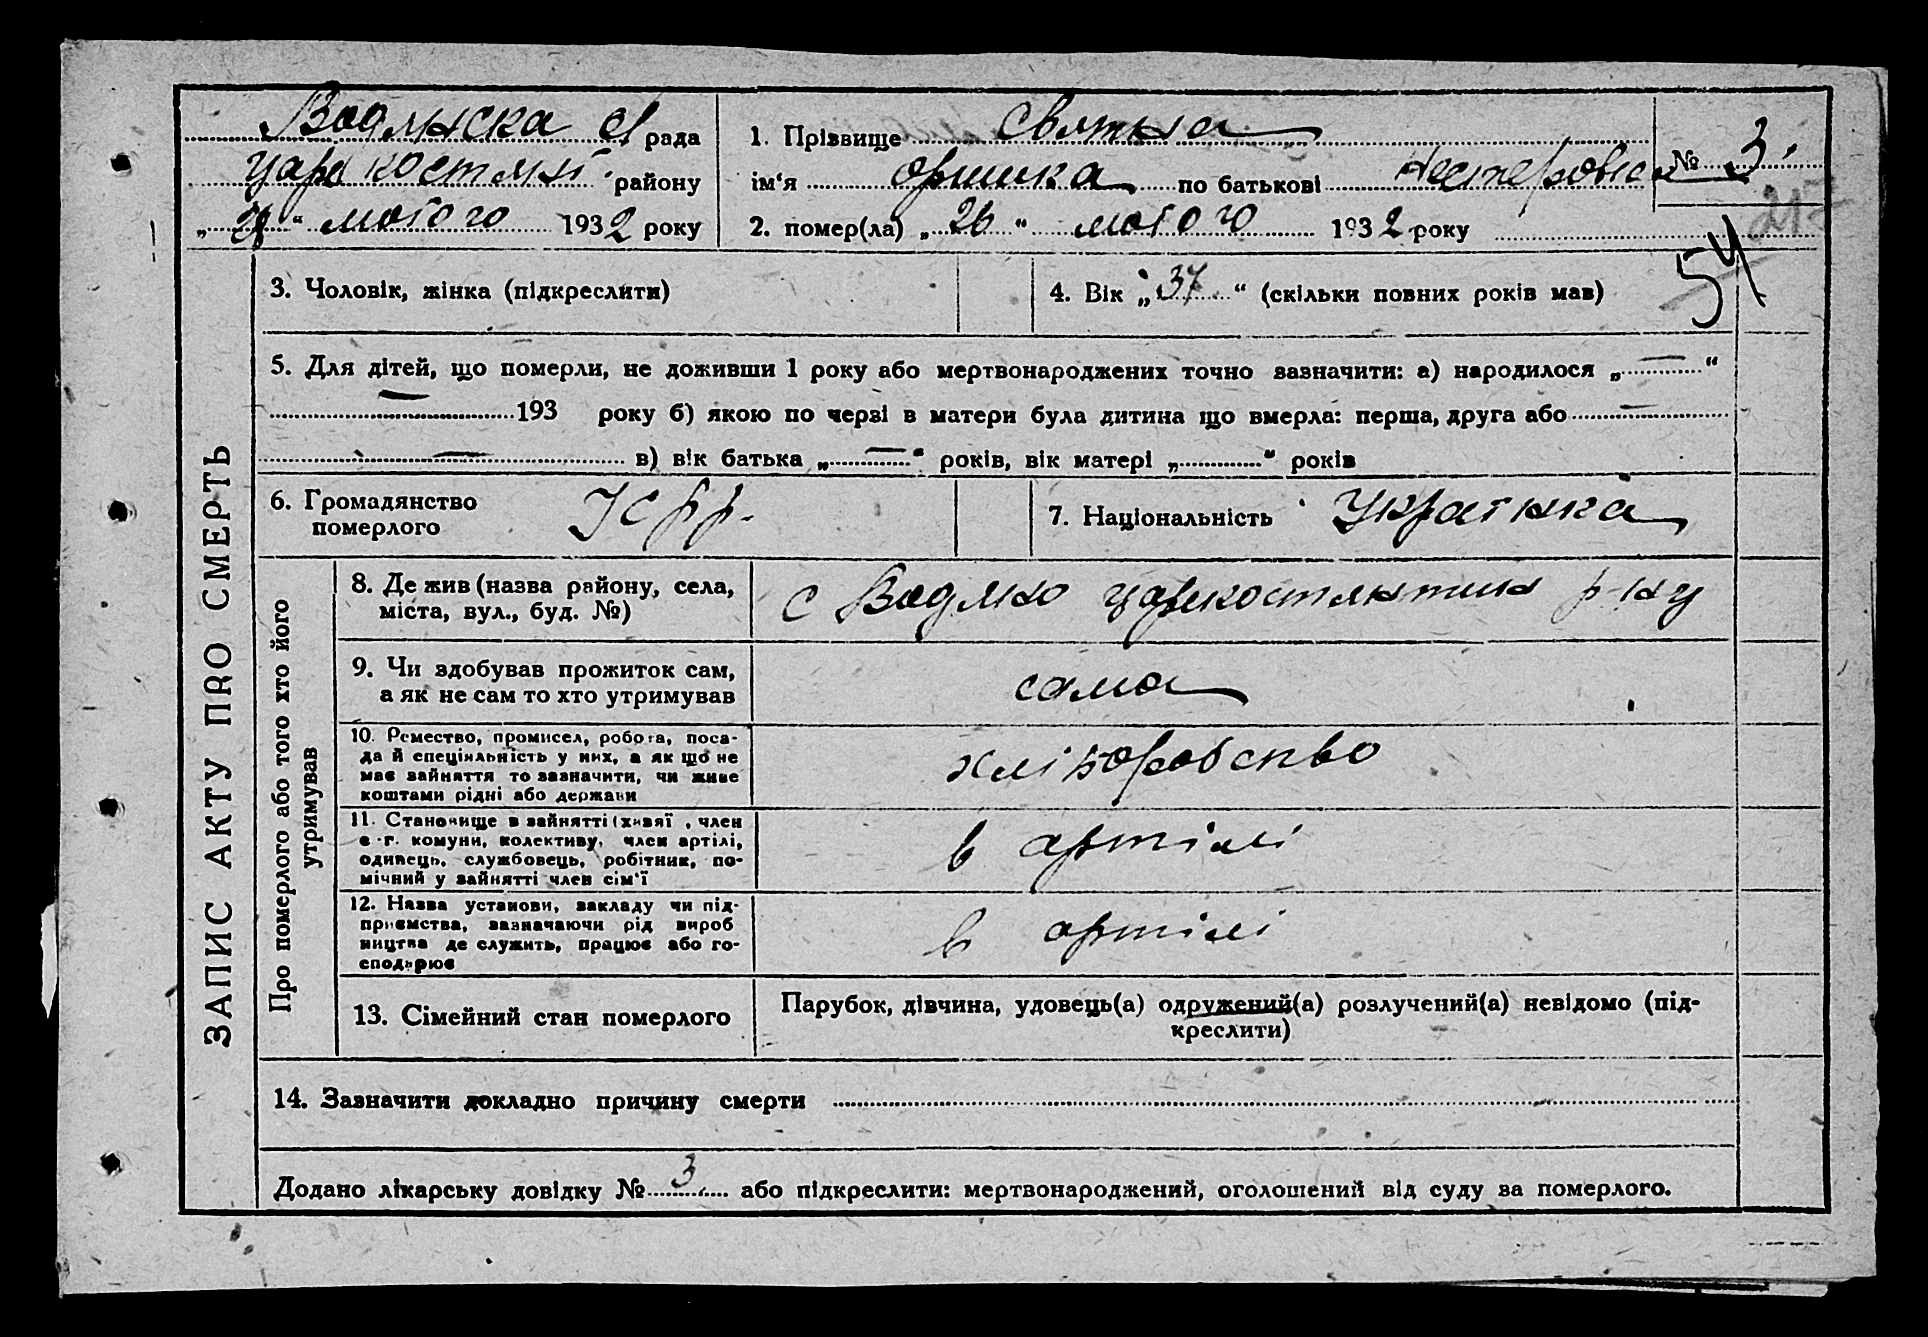 Водянска с/рада
царекостянт. району
„ “ лютого 1932 року
1. Прізвище Святна
ім‘я оришка по батькові Нестеровна № 3.
2. помер(ла) „ 26 “ лютого 1932 року
217
54
ЗАПИС АКТУ ПRО СМЕРТЬ
3. Чоловік, жінка (підкреслити)
4. Вік „ 37 “ (скільки повних років мав)
5. Для дітей, що померли, не доживши 1 року або мертвонароджених точно зазначити: а) народилося „ — “
— 193 року б) якою по черзі в матери була дитина що вмерла: перша, друга або —
— в) вік батька „ — “ років, вік матері „ “ років
6. Громадянство
померлого
УСРР.
7. Національність Українка
Про померлого або того хто його
утримував
8. Де жив (назва району, села,
міста, вул., буд. №)
с Водяно царекостянтин р-ну
9. Чи здобував прожиток сам,
а як не сам то хто утримував
сама
10. Ремество, промисел, робота, поса-
да й спеціяльність у них, а як що не
має зайняття то зазначити, чи живе
коштами рідні або держави
хліборобство
11. Становище в зайнятті (хазяї , член
с -г. комуни, колективу, член артілі,
одинець, службовець, робітник, по-
мічний у зайнятті член сім‘ї
в артілі
12. Назва установи, закладу чи під-
приємства, зазначаючи рід вироб
ництва де служить, працює або го-
сподарює
в артілі
13. Сімейний стан померлого
Парубок, дівчина, удовець(а) одружений(а) розлучений(а) невідомо (під-
креслити)
14. Зазначити докладно причину смерти
Додано лікарську довідку № 3 або підкреслити: мертвонароджений, оголошений від суду за померлого.